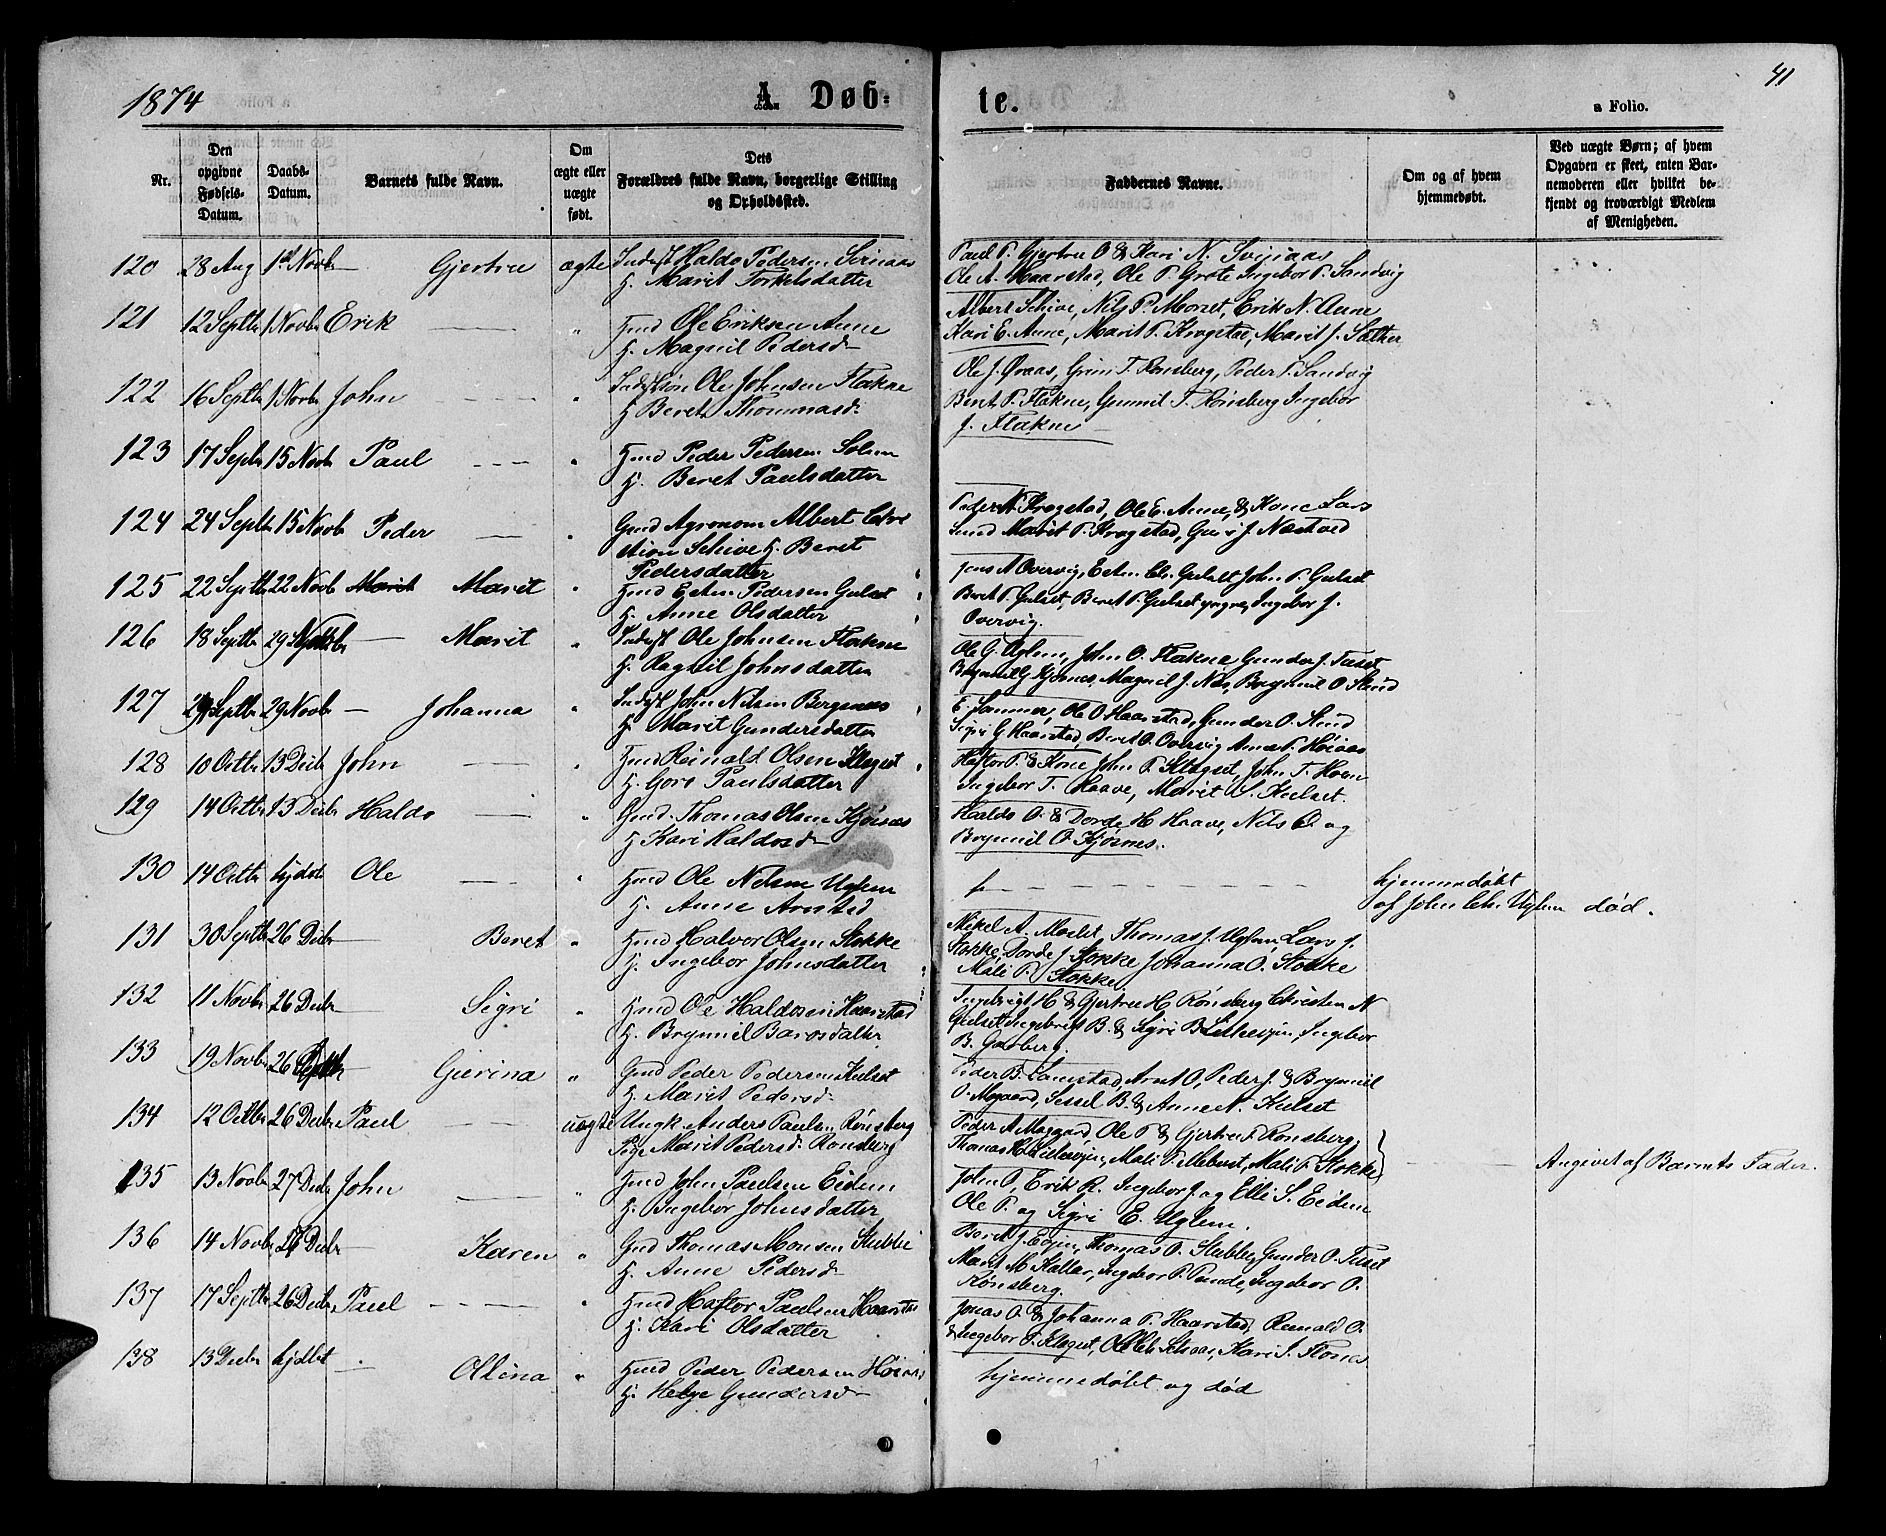 1874
A. Døb-
te.
a Folio.
41
Nr.
Den opgivne Fødsels-Datum.
Daabs-Datum.
Barnets fulde Navn.
Om ægte eller uægte født.
Dets Forældres fulde Navn, borgerlige Stilling og Opholdssted.
Faddernes Navne.
Om og af hvem hjemmedøbt.
Ved uægte Børn; af hvem Opgaven er skeet, enten Barnemoderen eller hvilket bekjendt og troværdigt Medlem af Menigheden.
120 28 Aug 1st Novb — Gjertru ægte Haldo Pedersen
H. Marit Torkelsdatter
Paul P. Gjertru O & Kari N.
Ole A. Haarstad, Ole P. Grøte Ingebor P. Sandvig
121 12 Septbr 1 Novbr Erik — " Ole Eriksen Aune
H. Magnil Pedersd
Albert Schive, Nils P. Morset, Erik N. Aune
Kari E. Aune, Marit P. Krogstad, Marit J. Sæther
122 16 Septbr 1 Novbr John — " Ole Johnsen Flakne
H Beret Thommasd
Ole J. Øraas, Grim T. Rønsberg, Peder P. Sandvig
Berit P. Flakne, Gunnil T. Rønsberg Ingebor
J. Flaknes
123 17 Septbr 15 Novbr Paul — " Peder Pedersen
H. Beret Paulsdatter
124 24 Septbr 15 Novbr Peder — " Gmd Agronom Albert Chri
stian Schive H. Beret
Pedersdatter
Peder N. Krogstad, Ole E. Aune, & Kone Lars
Sund Marit P. Krogstad, Guri J. Næstved
125 22 Septbr 22 Novb Marit Marit " Esten Pedersen Gulset
H. Anne Olsdatter
Jens A Overvig, Esten Chr. Gulset John P. Gulset
Beret P. Gulset, Beret P. Gulset yngre, Ingebor J.
Overvig.
126 18 Septbr 29 — Marit " Ole Johnsen Flakne
H. Ragnil Johnsdatter
Ole G. Uglem, John O. Flakne Gunder J. Tuset
Brynnil G Kjøsnes, Magnil J. Næs, Brynnil O. Slind
127 29 Septbr 29 Novbr — Johanna " John Nilsen
H. Marit Gundersdatter
E. Lommer, Ole O Haarstad, Gunder O. Slind
Sigri G Haarstad, Beret O. Overvig Anne P. Høiaas
128 10 Octbr 13 Decbr John — " Reinald Olsen Kløgset
H. Gore Paulsdatter
Haftor P. & Kone John P. Kløgset, John T. Moen
Ingebor T. Haave, Marit S. Kulset.
129 14 Octbr 13 Decbr Haldo — " Gmd. Thomas Olsen Kjøsnes
H. Kari Haldosd
Haldo O. & Dorde H Haave, Nils O. og
Brynnil O. Kjøsnes.
130 14 Octbr hjdøbt Ole — " Ole Nilsen Uglem
H. Anne Arnsted
hjemmedøbt
af John Chr. Uglem død.
131 30 Septbr 26 Decbr — Beret " Halvor Olsen Stokke
H. Ingebor Johnsdatter
Mikel A. Moslet, Thomas J. Uglem, Lars J.
Stokke, Dorde J. Stokke Johanna O. Stokke
Mali P. Stokke
132 11 Novbr 26 Decbr — Sigri " Ole Haldosen Haarstad
H. Brynnil Barosdatter
Ingebrigt H. & Gjertru H. Rønsberg Christen N
Gulset Ingebrigt B. & Sigri B. Litlevøjen, Ingebor
B. Garberg.
133 19 Novbr 26 — Gjerina " Gmd Peder Pedersen Kulset
H. Marit Pedersd
Peder B. Lamstad, Arnt O, Peder J. & Brynnil
O. Mogaard, Sessel B. & Anne N. Kulset
134 12 Octbr 26 Decbr Paul — uægte Ungk. Anders Paulsen Rønsberg
Pige Marit Pedersd. Rønsberg
Peder A Mogaard, Ole P. & Gjertru P. Rønsberg,
Thomas H. Litlevøjen, Mali P. Mebust, Mali P. Stokke
Angivet af Barnets Fader.
135 13 Novbr 27 Decbr John — " John Paulsen Eidem
H. Ingebor Johnsdatter
John O. Erik R. Ingebor J. og Elli S. Eidem
Ole P. og Sigri E. Uglem.
136 14 Novbr 26 Decbr — Karen " Gmd Thomas Monsen Stubbe
H. Anne Pedersd
Berit J. Evjen, Thomas O. Stubbe, Gunder O. Tuset
Marit M Kallar, Ingebor P. Pande, Ingebor O.
Rønsberg.
137 17 Septbr 26 Decbr Paul — " Haftor Paulsen Haarstad
H. Kari Olsdatter
Jonas O. & Johanna P. Haarstad, Reinald O.
& Ingebor P. Kløgset, Ole Kari S.
138 13 Decbr hjdøbt — Ollina " Peder Pedersen Høiaas
H. Helge Gundersd
hjemmedøbt og død